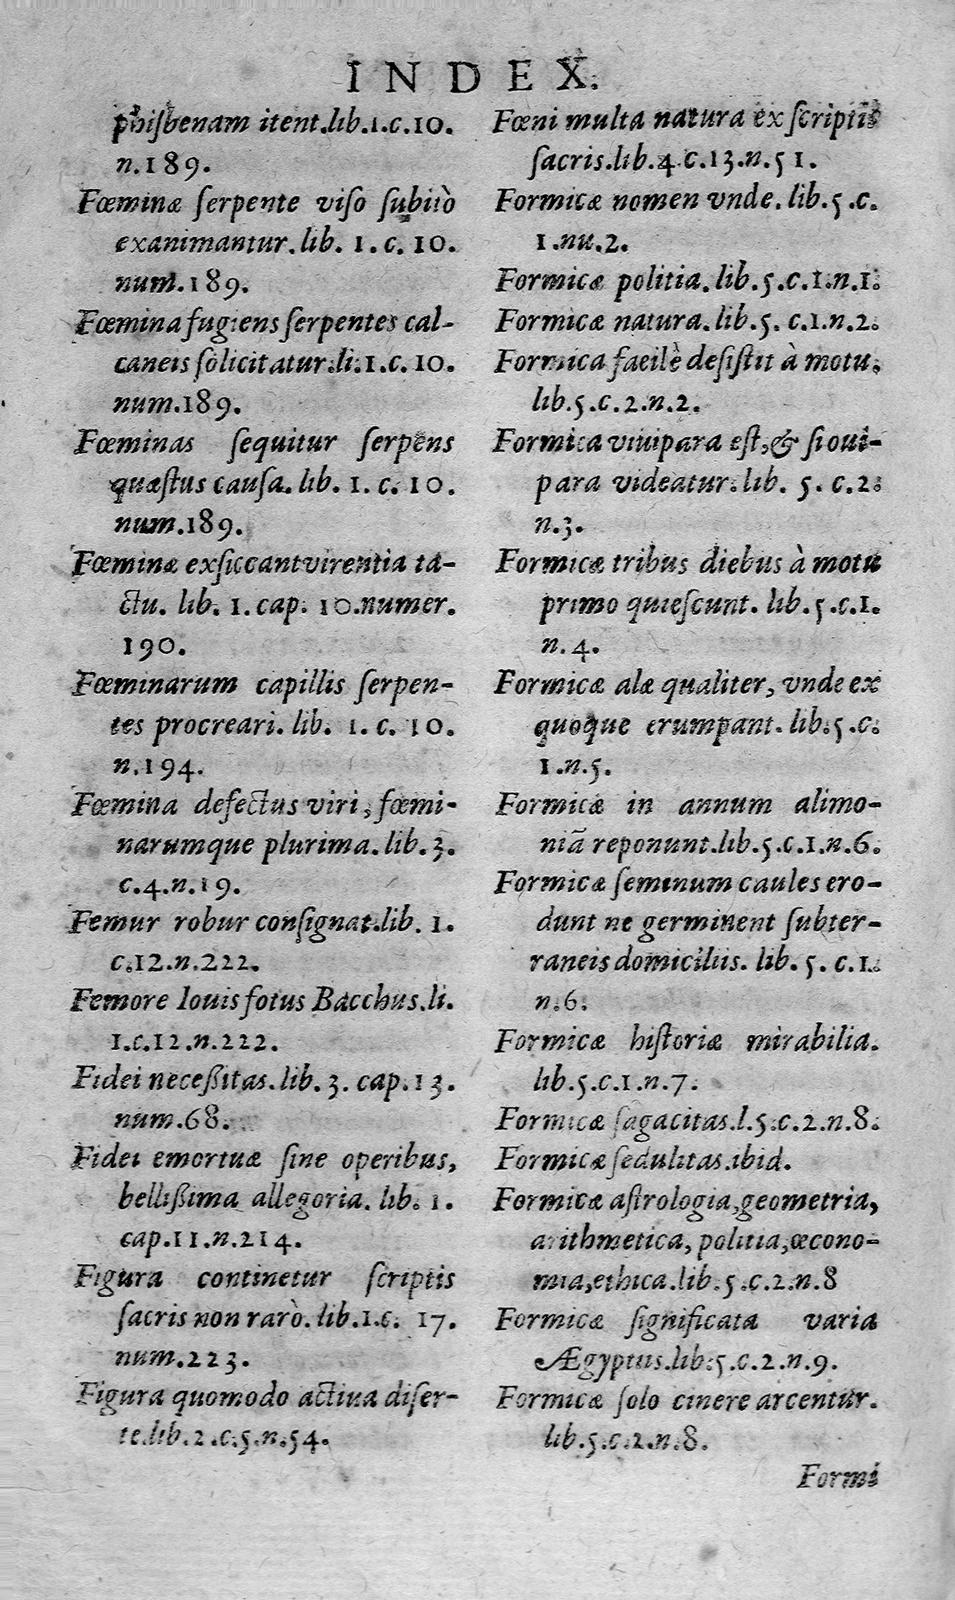 INDEX.
phisbenam itent.lib.1.c.10.
n.189.
Fœminæ ſerpente viſo ſubitò
exanimantur.lib. 1. c. 10.
num.189.
Fœmina fugiens ſerpentes cal-
caneis ſolicitatur.li.1.c.10.
num.189.
Fœminas ſequitur ſerpens
quæſtus cauſa. lib. 1. c. 10.
num.189.
Fœminæ exſiccant virentia ta-
ctu. lib. 1. cap. 10.numer.
190.
Fœminarum capillis ſerpen-
tes procreari. lib. 1. c. 10.
n.194.
Fœmina defectus viri, fœmi-
narumque plurima. lib. 3.
c.4.n.19.
Femur robur conſignat.lib. 1.
c.12.n.222.
Femore Iouis fotus Bacchus.li.
1.c.12.n.222.
Fidei neceßitas.lib. 3. cap.13.
num.68.
Fidei emortuæ ſine operibus,
bellißima allegoria. lib. 1.
cap.11.n.214.
Figura continetur ſcriptis
ſacris non rarò. lib.1.c. 17.
num.223.
Figura quomodo actiua diſer-
te.lib.2.c.5.n.54.
Fœni multa natura ex ſcriptis
ſacris.lib.4.c.13.n.51.
Formicæ nomen vnde. lib.5.c.
1.nu.2.
Formicæ politia. lib.5.c.1.n.1.
Formicæ natura.lib.5. c.1.n.2.
Formica facilè deſiſtit à motu.
lib.5.c.2.n.2.
Formica viuipara eſt,& ſi oui-
para videatur.lib. 5. c.2.
n.3.
Formicæ tribus diebus à motu
primo quieſcunt. lib.5.c.1.
n.4.
Formicæ alæ qualiter, vnde ex
quoque erumpant. lib.5.c.
1.n.5.
Formicæ in annum alimo-
niā reponunt.lib.5.c.1.n.6.
Formicæ ſeminum caules ero-
dunt ne germinent ſubter-
raneis domiciliis. lib. 5. c.1.
n.6.
Formicæ hiſtoriæ mirabilia.
lib.5.c.1.n.7.
Formicæ ſagacitas.l.5.c.2.n.8.
Formicæ ſedulitas.ibid.
Formicæ aſtrologia,geometria,
arithmetica, politia,œcono-
mia,ethica.lib.5.c.2.n.8
Formicæ ſignificata varia
Ægyptus.lib.5.c.2.n.9.
Formicæ ſolo cinere arcentur.
lib.5.c.2.n.8.
Formi